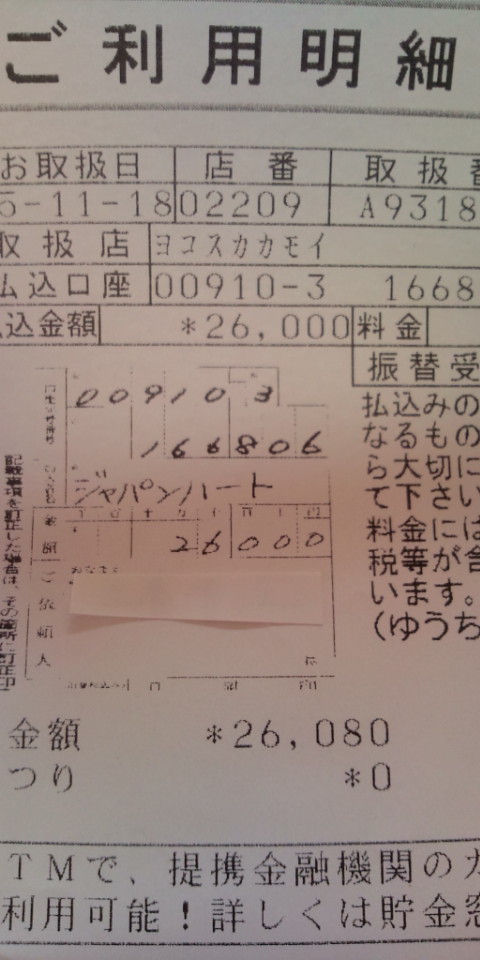 ご利用明細
お取扱日 店番 取扱番
5-11-18 02209 A9318
取扱店 ヨコスカカモイ
払込口座 00910-3 1668
込金額 *26,000 料金
振替受
払込みの
なるもの
ら大切に
て下さい
料金には
税等が含
います。
(ゆうち
00910 3
166806
ジャパンハート
金額 26000
ご依頼人
記載事項を訂正した場合は、その箇所に訂正印
金額 *26,080
つり *0
TMで、提携金融機関のカ
利用可能!詳しくは貯金窓